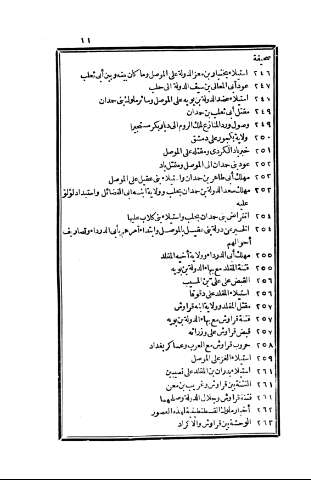 ١١
صحيفة
٢٤٦ استيلاء بختيار بن معز الدولة على الموصل وما كان بينه وبين أبي تغلب
٢٤٧ عود أبي المعالي بن سيف الدولة الى حلب
٢٤٨ استيلاء عضد الدولة بن بويه على الموصل وسائر ملوك بنى حمدان
٢٤٩ مقتل أبي تغلب بن حمدان
٢٤٩ وصول ورد المنازع لملك الروم الى ديار بكر مستجيرا
٢٥٠ ولاية بكجور على دمشق
٢٥١ خبر باد الكردى ومقتله على الموصل
٢٥٢ عود بنى حمدان الى الموصل ومقتل باد
٢٥٣ مهلك أبي طاهر بن حمدان واستيلاء بنى عقيل على الموصل
٢٥٣ مهلك سعد الدولة بن حمدان بحلب وولاية ابنه أبي الفضائل واستبداد لؤلؤ
عليه
٢٥٤ انقراض بنى حمدان بحلب واستيلاء بنى كلاب عليها
٢٥٤ الخبر عن دولة بنى عقيل بالموصل وابتداء أمرهم بأبي الدرداء وتصاريف
أحوالهم
٢٥٥ مهلك أبي الدرداء وولاية أخيه المقلد
٢٥٥ فتنة المقلد مع بهاء الدولة بن بويه
٢٥٦ القبض على على بن المسيب
٢٥٦ استيلاء المقلد على دقوقا
٢٥٧ مقتل المقلد وولاية ابنه قراوش
٢٥٧ فتنة قراوش مع بهاء الدولة بن بويه
٢٥٧ قبض قراوش على وزرائه
٢٥٨ حروب قراوش مع العرب وعساكر بغداد
٢٥٩ استيلاء الغز على الموصل
٢٦١ استيلاء بدران بن المقلد على نصيبين
٢٦١ الفتنة بين قراوش وغريب بن معن
٢٦١ فتنة قراوش وجلال الدولة وصلحهما
٢٦٢ أخبار ملوك القسطنطينية لهذه العصور
٢٦٣ الوحشة بين قراوش والاكراد